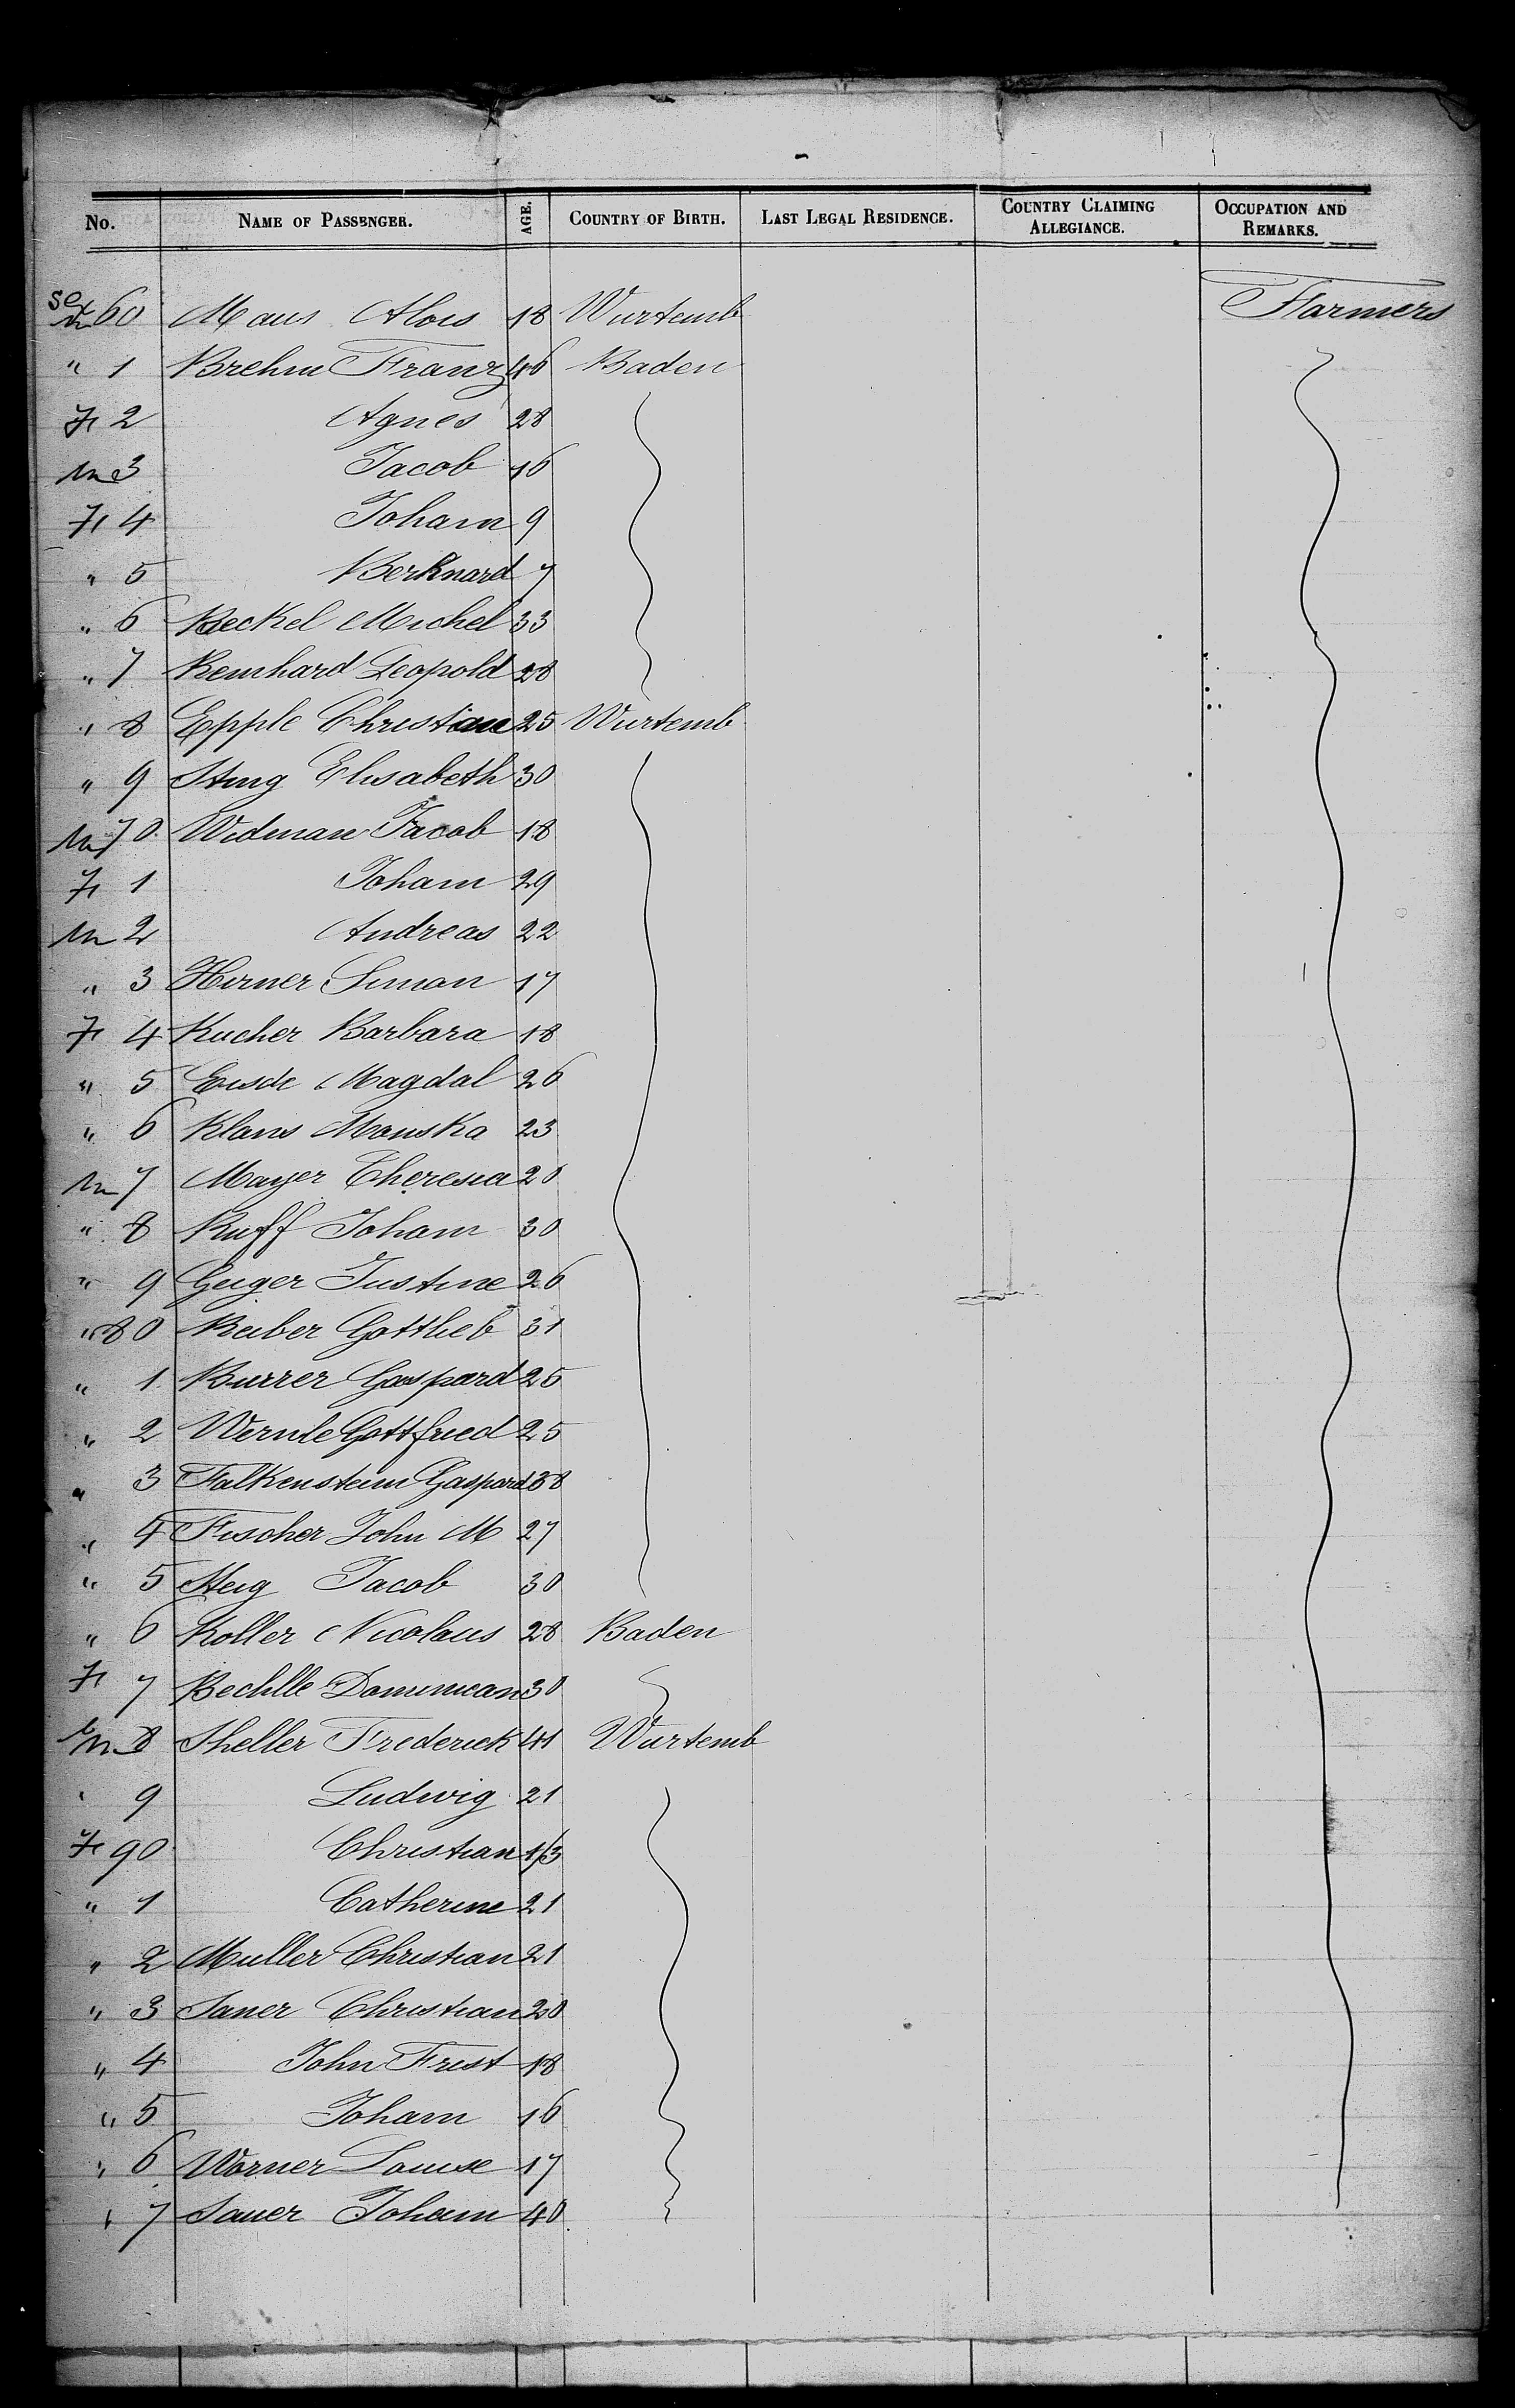 No. NAME OF PASSENGER. AGE. COUNTRY OF BIRTH. LAST LEGAL RESIDENCE. COUNTRY CLAIMING ALLEGIANCE. OCCUPATION AND REMARKS.
sex
m 60 Maus Alois 18 Wurtemb Farmers
" 1 Brehm Franz 46 Baden
F 2 Agnes 28
m 3 Jacob 16
F 4 Joham 9
" 5 Bernard 7
" 6 Beckel Michel 33
" 7 Reinhard Leopold 28
" 8 Epple Christian 25 Wurtemb
" 9 Sting Elisabeth 30
m 70 Widman Jacob 18
F 1 Joham 29
m 2 Andreas 22
" 3 Hirner Simon 17
F 4 Kucher Barbara 18
" 5 Magdal 26
" 6 Klans 23
m 7 Mayer Theresia 20
" 8 Ruff Joham 30
" 9 Geiger Justine 26
" 80 Beiber Gottlieb 31
" 1 Burrer Gaspard 25
" 2 Wernle Gottfried 25
" 3 Falkenstein Gaspard 38
" 4 Fischer John M 27
" 5 Steig Jacob 30
" 6 Koller Nicolaus 28 Baden
F 7 Bechlle Dominican 30
m 8 Sheller Frederick 41 Wurtemb
" 9 Ludwig 21
F 90 Christian
" 1 Catherine 21
" 2 Muller Christian 21
" 3 Saner Christian 20
" 4 John Frest 18
" 5 Joham 16
" 6 Worner Louise 17
" 7 Sauer Joham 40